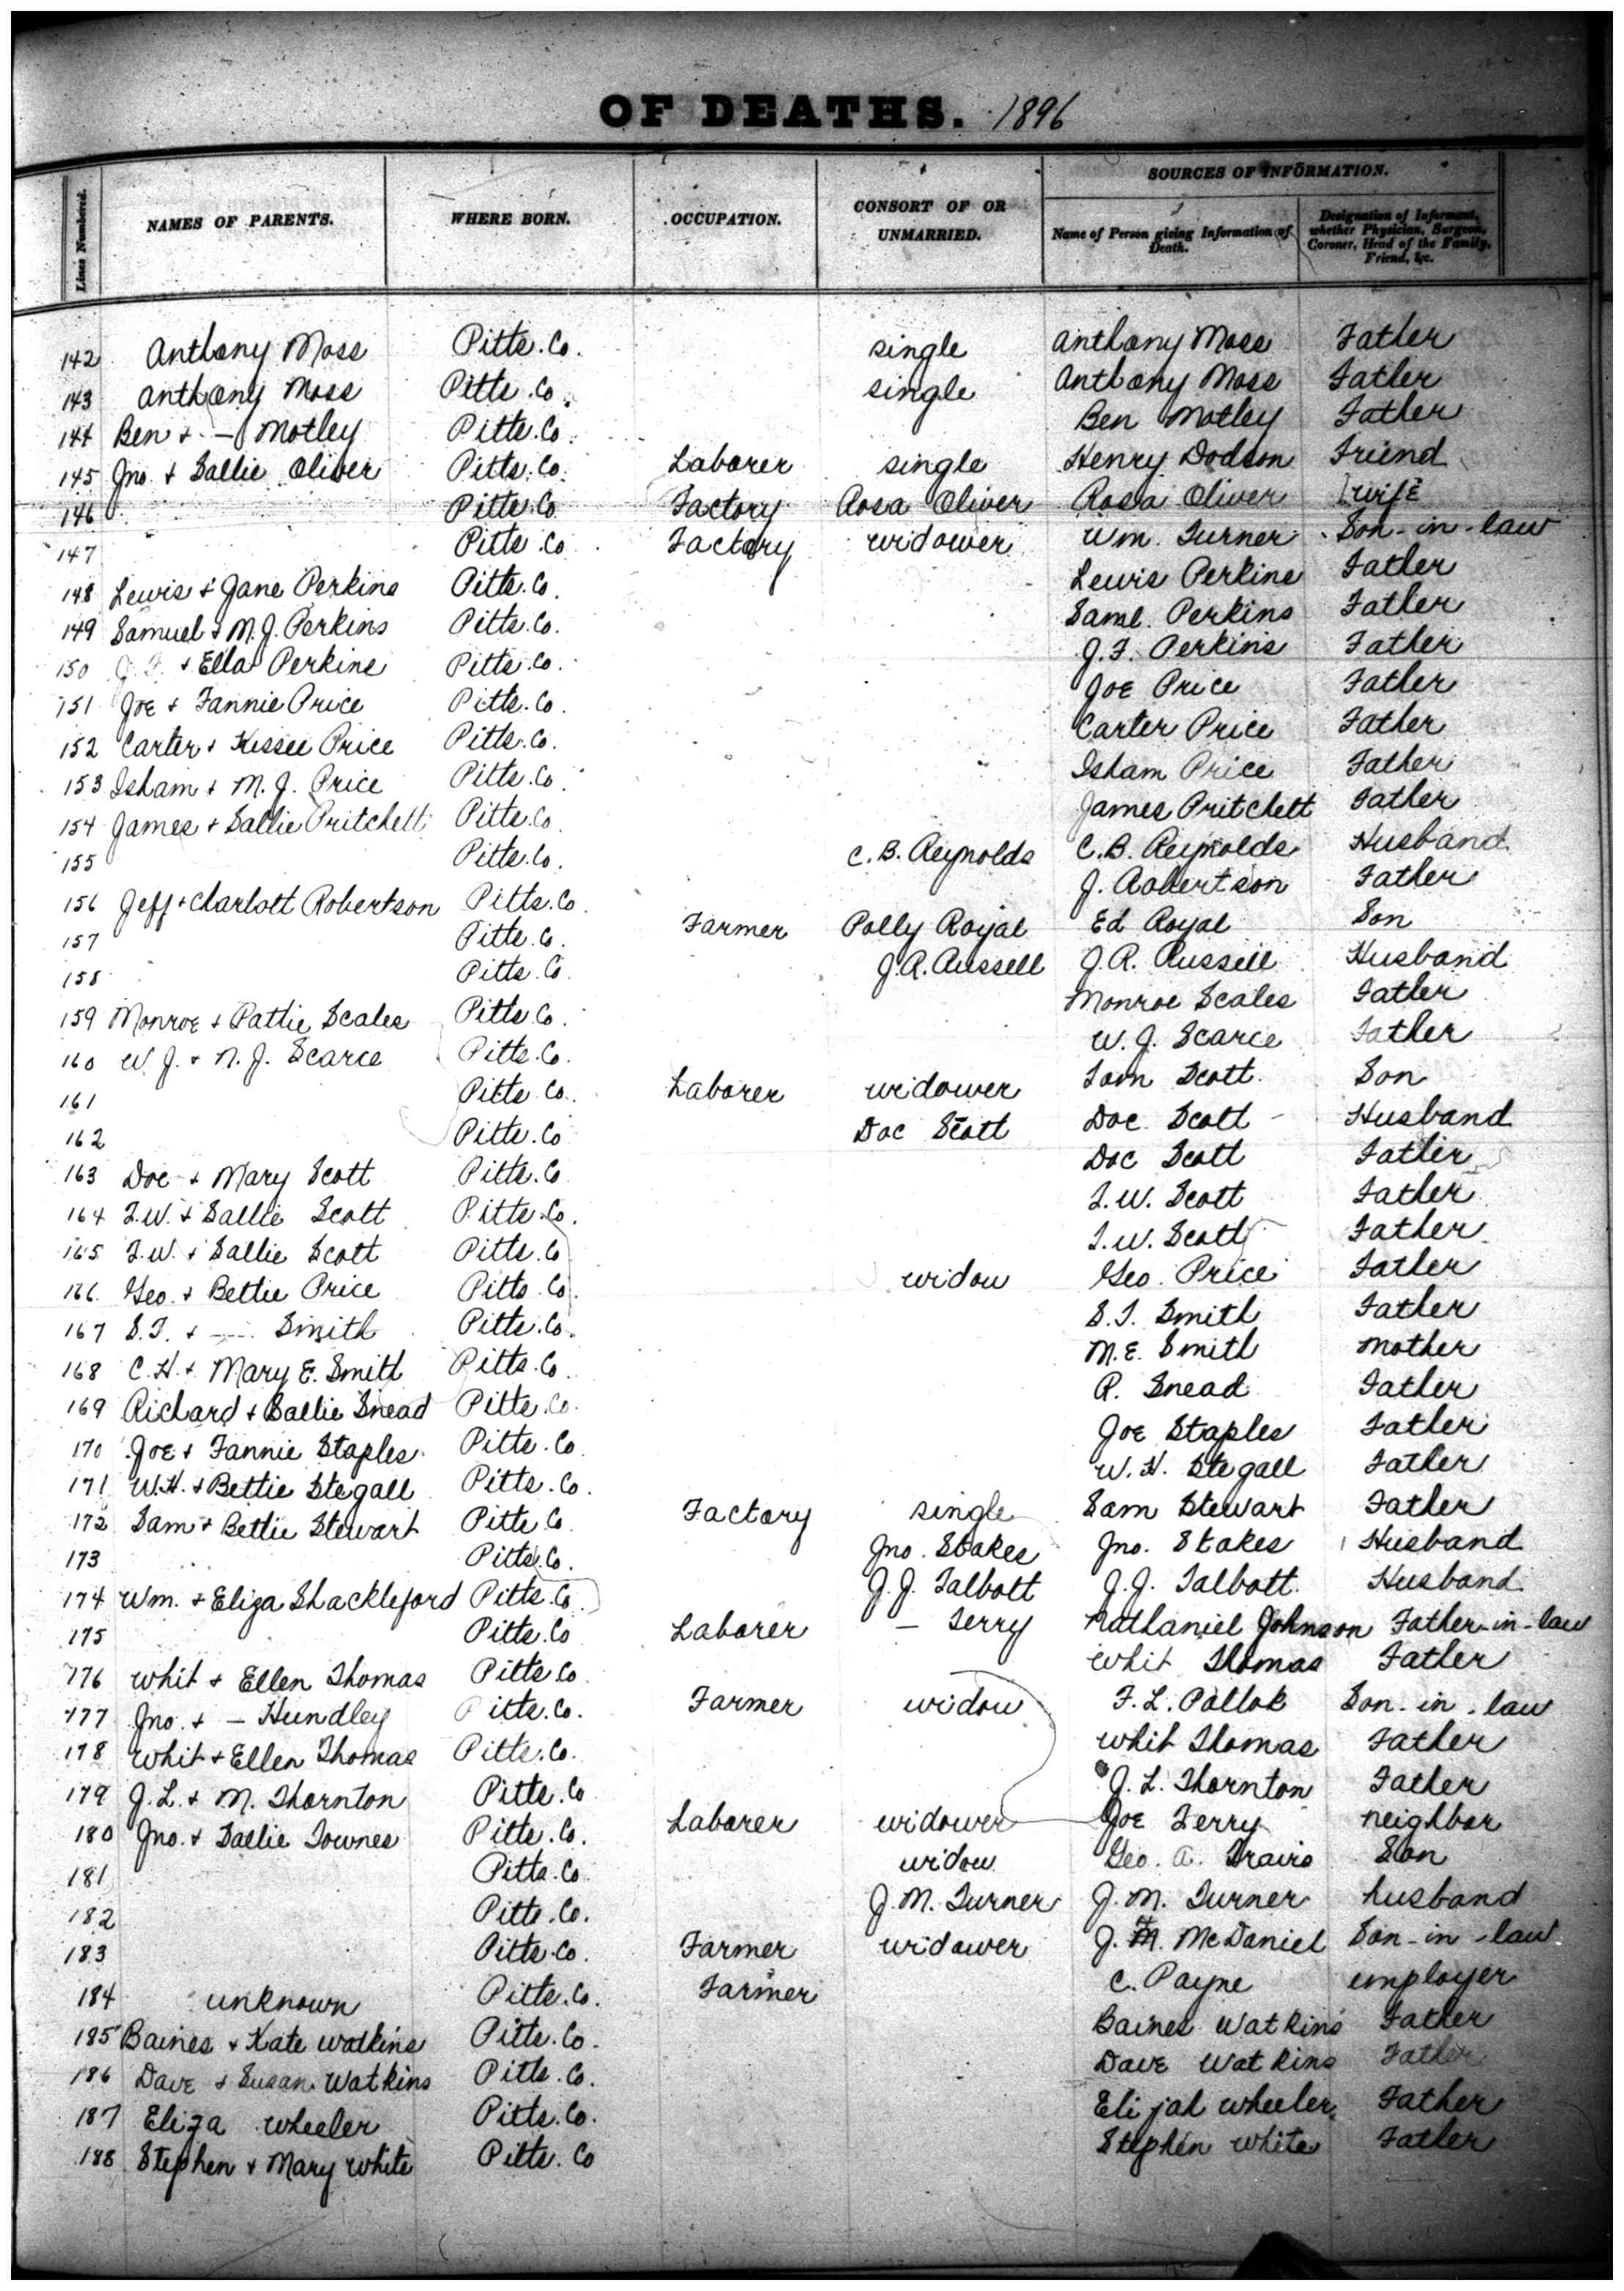 OF DEATHS. 1896
Lines Numbered. NAMES OF PARENTS. WHERE BORN. OCCUPATION. CONSORT OF OR UNMARRIED. SOURCES OF INFORMATION.
Name of Person giving Information of Death. Designation of Informant, whether Physician, Surgeon, Coroner, Head of the Family, Friend, &c.
142 Anthony Moss Pitts. Co. single Anthony Moss Father
143 Anthony Moss Pitts. Co. single Anthony Moss Father
144 Ben + — Motley Pitts. Co. Ben Motley Father
145 Jno. + Sallie Oliver Pitts. Co. Laborer single Henry Dodson Friend
146 Pitts. Co Factory Rosa Oliver Rosa Oliver wife
147 Pitts. Co Factory widower Wm. Turner Son-in-law
148 Lewis + Jane Perkins Pitts. Co. Lewis Perkins Father
149 Samuel + M. J. Perkins Pitts. Co. Saml. Perkins Father
150 J. F. + Ella Perkins Pitts. Co. J. F. Perkins Father
151 Joe + Fannie Price Pitts. Co. Joe Price Father
152 Carter + Kissee Price Pitts. Co. Carter Price Father
153 Isham + M. J. Price Pitts. Co. Isham Price Father
154 James + Sallie Pritchett Pitts. Co. James Pritchett Father
155 Pitts. Co. C. B. Reynolds C. B. Reynolds Husband
156 Jeff + Charlott Robertson Pitts. Co. J. Robertson Father
157 Pitts. Co. Farmer Polly Royal Ed Royal Son
158 Pitts. Co. J. R. Russell J. R. Russell Husband
159 Monroe + Pattie Scales Pitts. Co. Monroe Scales Father
160 W. J. + N. J. Scarce Pitts. Co. W. J. Scarce Father
161 Pitts. Co. Laborer widower Tom Scott Son
162 Pitts. Co Doc Scott Doc Scott Husband
163 Doc + Mary Scott Pitts. Co Doc Scott Father
164 T. W. + Sallie Scott Pitts. Co. T. W. Scott Father
165 T. W. + Sallie Scott Pitts. Co T. W. Scott Father
166 Geo. + Bettie Price Pitts. Co. widow Geo. Price Father
167 S. T. + — Smith Pitts. Co. S. T. Smith Father
168 C. H. + Mary E. Smith Pitts. Co. M. E. Smith Mother
169 Richard + Sallie Snead Pitts. Co. R. Snead Father
170 Joe + Fannie Staples Pitts. Co. Joe Staples Father
171 W. H. + Bettie Stegall Pitts. Co. W. H. Stegall Father
172 Sam + Bettie Stewart Pitts Co. Factory single Sam Stewart Father
173 Pitts. Co. Jno. Stakes Jno. Stakes Husband
174 Wm. + Eliza Shackleford Pitts. Co. J. J. Talbott J. J. Talbott Husband
175 Pitts. Co Laborer — Terry Nathaniel Johnson Father-in-law
176 Whit + Ellen Thomas Pitts Co Whit Thomas Father
177 Jno. + — Hundley Pitts. Co. Farmer widow F. L. Pollok Son-in-law
178 Whit + Ellen Thomas Pitts. Co. Whit Thomas Father
179 J. L. + M. Thornton Pitts. Co J. L. Thornton Father
180 Jno. + Sallie Townes Pitts. Co. Laborer widower Joe Terry neighbor
181 Pitts. Co widow Geo. A. Travis Son
182 Pitts. Co. J. M. Turner J. M. Turner husband
183 Pitts. Co. Farmer widower J. McDaniel Son-in-law
184 unknown Pitts. Co. Farmer C. Payne employer
185 Baines + Kate Watkins Pitts. Co. Baines Watkins Father
186 Dave + Susan Watkins Pitts. Co. Dave Watkins Father
187 Eliza Wheeler Pitts. Co. Elijah Wheeler Father
188 Stephen + Mary White Pitts. Co Stephen White Father